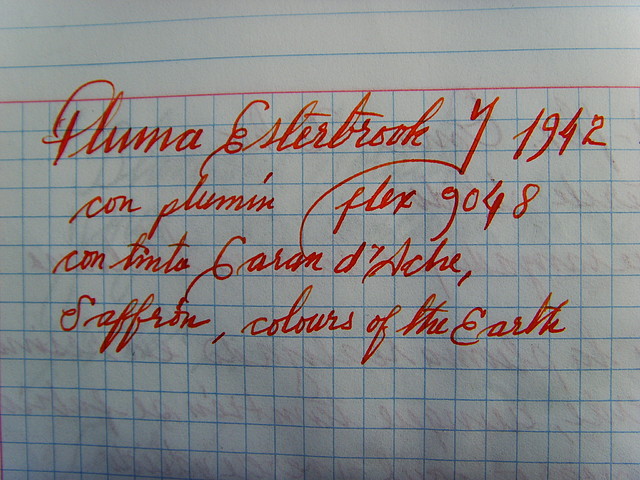 Pluma Esterbrook J 1942
con plumin flex 9048
con tinta Caran d'Ache,
Saffron, colours of the Earth